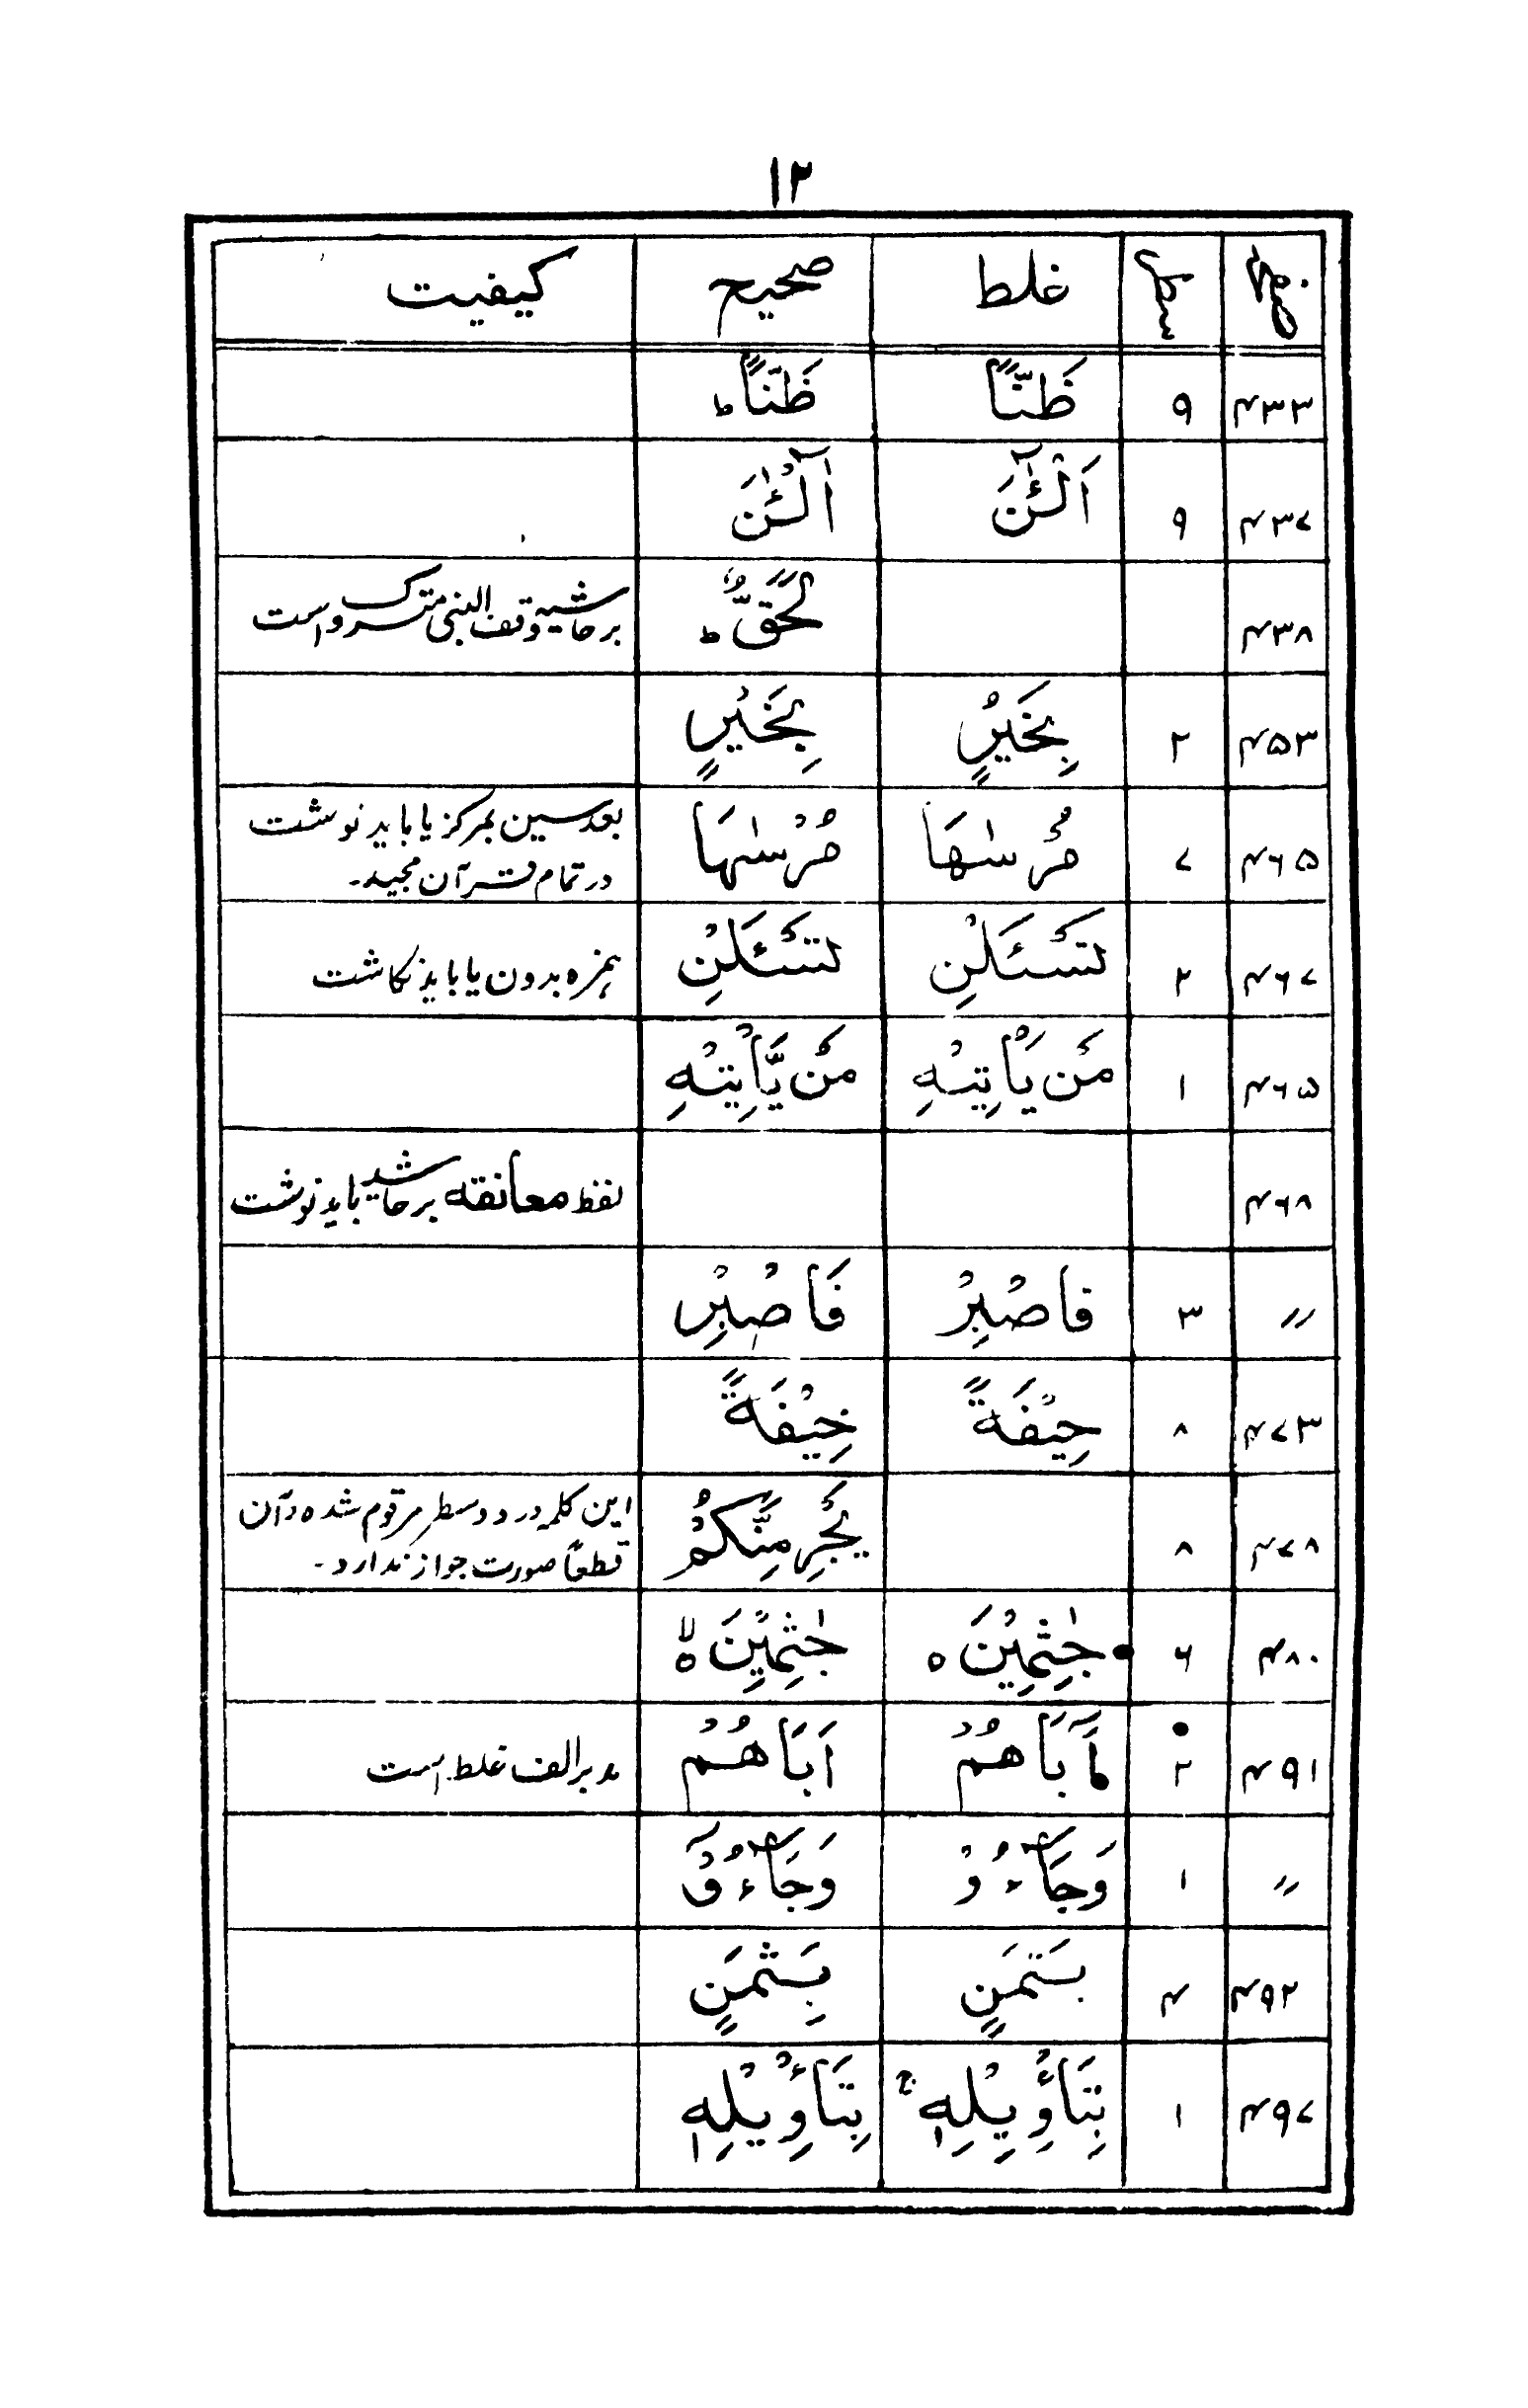 ۱۲
صفحه سطر غلط صحیح کیفیت
۴۳۳ ۹ ظَنّّاً ظَنّاًط
۴۳۷ ۹ اَلْـٰٔٓنَ آٰلْـٰٔنَ
۴۳۸ لَحَقٌّ ط برحاشیه وقف النبی متروک است
۴۵۳ ۲ بِخَیْرٍ بِخَیْرٍ
۴۶۵ ۷ مُرْسٰهَا مُرْسٰىهَا بعد سین بمرکز یا باید نوشت
در تمام قرآن مجید۔
۴۶۷ ۲ تَسْـَٔلْنِ تَسْـَٔلْنِ همزه بدون یا باید نگاشت
۴۶۵ ۱ مَن یَاْتِیْهِ مَنْ یَّاْتِیْهِ
۴۶۸ لفظ معانقه برحاشیه باید نوشت
〃 ۳ فاصْبِرْ فَاصْبِرْ
۴۷۳ ۸ حِیْفَةً خِیْفَةً
۴۷۸ ۸ یَجْرِمَنَّکُمْ این کلمه در دو سطر مرقوم شده و آن
قطعًا صورت جواز ندارد۔
۴۸۰ ۶ جٰثِمِیْنَ ه جٰثِمِیْنَ ۙه
۴۹۱ ۲ آبَاهُمْ اَبَاهُمْ مد بر الف غلط است
〃 ۱ وَجَآءُوْ وَجَآءُوْٓ
۴۹۲ ۴ بِسَتَمَنٍ بِثَمَنٍ
۴۹۷ ۱ بِتَاْوِیْلِهٖ ج بِتَاْوِیْلِهٖ